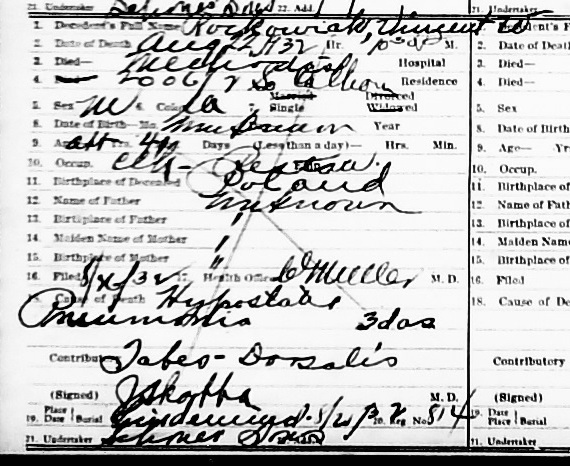 21. Undertaker 22. Add.
1. Decedent's Full Name Vincent
2. Date of Death Aug 2 1932 Hr. M.
3. Died— Methodist Hospital
4. 2006 1/2 So Calhoun Residence
Married Divorced
5. Sex M 6. Color W 7. Single Widowed
8. Date of Birth—Mo. Unknown Year
9. Age abt 49 Days (Less than a day)— Hrs. Min.
10. Occup. Clk—
11. Birthplace of Deceased Poland
12. Name of Father Unknown
13. Birthplace of Father "
14. Maiden Name of Mother "
15. Birthplace of Mother "
16. Filed 17. Health Officer Mueller M. D.
18. Cause of Death Hypostatic
Pneumonia 3 das
Contributory Tabes-Dorsalis
(Signed) M. D.
19. Place Date Burial Lindenwood 20. Reg No. 814
21. Undertaker
2. Date of Death
3. Died—
4. Died—
5. Sex
8. Date of Birth
9. Age— Yr
10. Occup.
11. Birthplace of
12. Name of Fath
13. Birthplace of
14. Maiden Name
15. Birthplace of
16. Filed
18. Cause of De
Contributory
(Signed)
19. Place Date Burial
21. Undertaker